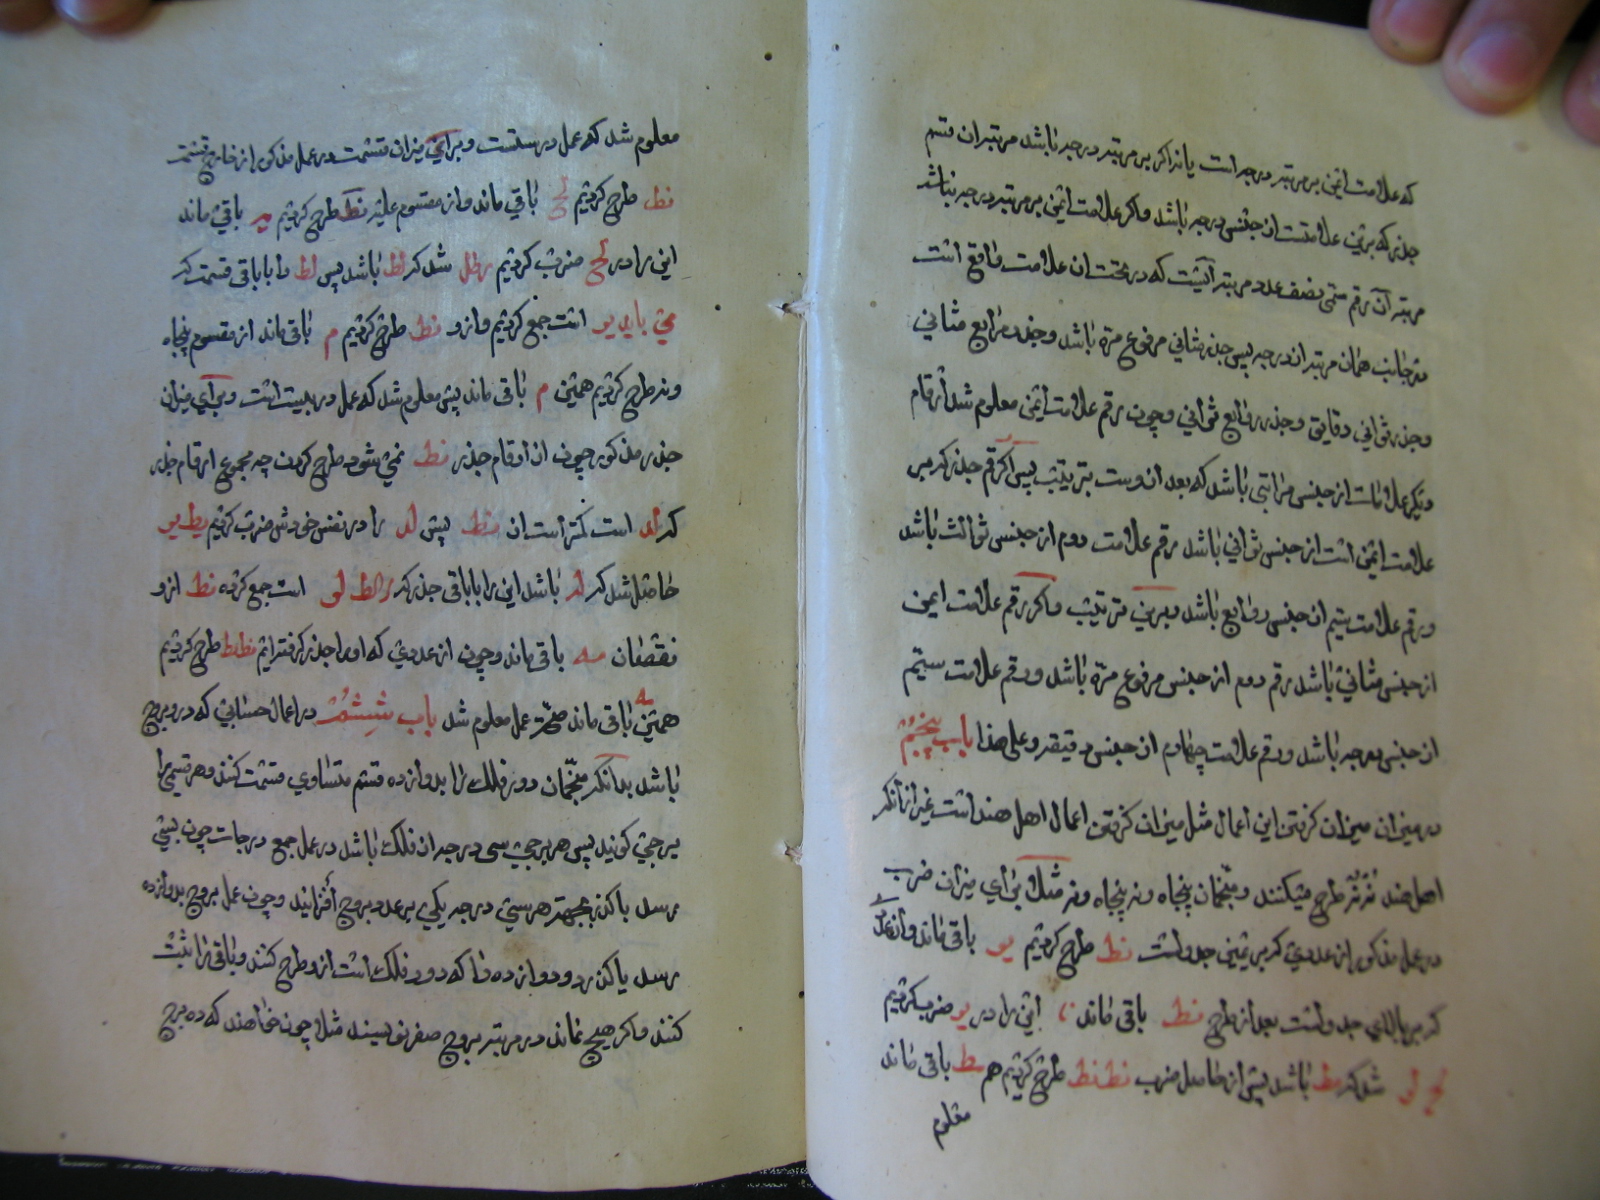 که علامت ایمن بر مرتبه درجه است یا نه اگر بر مرتبه درجه باشد مرتبه ان قسم
جذر که برین علامتست از جنس درجه باشد و اگر علامت ایمن بر مرتبه درجه نباشد
مرتبه آن رقم سمی نصف عدد مرتبه آنست که در تحت ان علامت واقع است
در جانب همان مرتبه از درجه پس جذر مثانی مرفوع مره باشد و جذر رابع مثانی
و جذر ثوانی دقایق و جذر روابع ثوانی و چون رقم علامت ایمن معلوم شد ارقام
دیگر علامات از جنس مراتبی باشد که بعد از وست بترتیب پس اگر رقم جذر که بر
علامت ایمن است از جنس ثوانی باشد رقم علامت دوم از جنس ثوالث باشد
و رقم علامت سیم از جنس روابع باشد و برین ترتیب و اگر رقم علامت ایمن
از جنس مثانی باشد رقم دوم از جنس مرفوع مره باشد و رقم علامت سیم
از جنس درجه باشد و رقم علامت چهارم از جنس دقیقه و علی هذا باب پنجم
در میزان میزان کرفتن این اعمال مثل میزان کرفتن اعمال اهل هند است غیر از انکه
اهل هند نُه نُه طرح میکنند و منجمان پنجاه و نه پنجاه و نه مثلا برای میزان ضرب
در عمل مذکور از عددی که بر یمین جدولست نط طرح کردیم یو باقی ماند و از عددی
که بر بالای جدولست بعد از طرح نط باقی ماند این را در یو ضرب کردیم
شد که مط باشد پس از حاصل ضرب نط نط طرح کردیم هم مط باقی ماند
معلوم
معلوم شد که عمل درستست و برای میزان قسمت در عمل مذکور از خارج قسمت
نط طرح کردیم لح باقی ماند و از مقسوم علیه نط طرح کردیم باقی ماند
این را در لح ضرب کردیم شد که لط باشد پس لط را با باقی قسمت که
است جمع کردیم و ازو نط طرح کردیم م باقی ماند از مقسوم پنجاه
و نه طرح کردیم همین م باقی ماند پس معلوم شد که عمل درست است و برای میزان
جذر مذکور چون از ارقام جذر نط نمی شود طرح کردن چه مجموع ارقام جذر
که لد است کمتر است از نط پس لد را در نفس خودش ضرب کردیم یط یو
حاصل شد که باشد این را با باقی جذر که است جمع کرده نط ازو
نقصان مه باقی ماند و چون از عددی که اورا جذر کرفته ایم نط نط طرح کردیم
همین مه باقی ماند صحت عمل معلوم شد باب ششم در اعمال حسابی که در بروج
باشد بدانکه منجمان دور فلک را بدوازده قسم متساوی قسمت کنند و هر قسمی را
برجی کویند پس هر برجی سی درجه از فلک باشد در عمل جمع درجات چون بسی
رسد یا کذرد بجهت هر سی درجه یکی بر عدد بروج افزایند و چون عمل بروج بدوازده
رسد یا کذرد دوازده را که دور فلک است ازو طرح کنند و باقی را ثبت
کنند و اکر هیچ نماند در مرتبه بروج صفر نویسند مثلا چون خواهند که ده برج